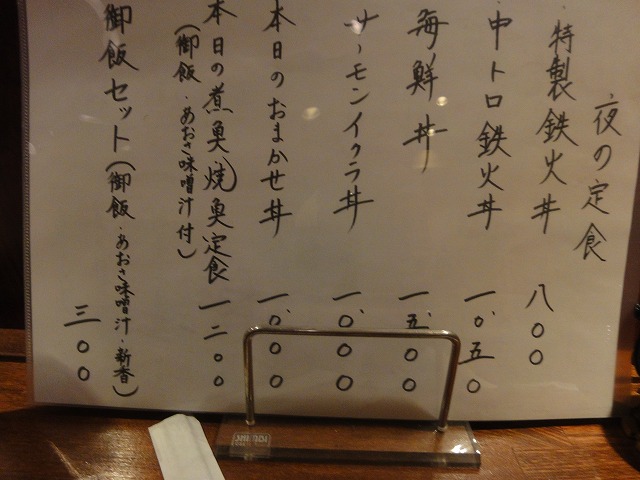 夜の定食
特製鉄火丼 八〇〇
中トロ鉄火丼 一、〇五〇
海鮮丼 一、五〇〇
サーモンイクラ丼 一、〇〇〇
本日のおまかせ丼 一、〇〇〇
本日の煮魚（焼）魚定食 一二〇〇
（御飯・あおさ味噌汁付）
御飯セット（御飯・あおさ味噌汁・新香） 三〇〇